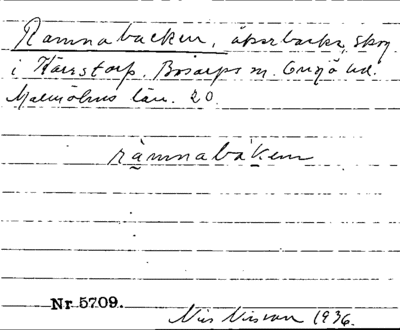 Ramnabacken, åkerbacke, skog
i Kärrstorp. Bosarps sn. Onsjö hd.
Malmöhus län. 20.
ràmnabákem
Nr 5709.
Nils Nilsson 1936.